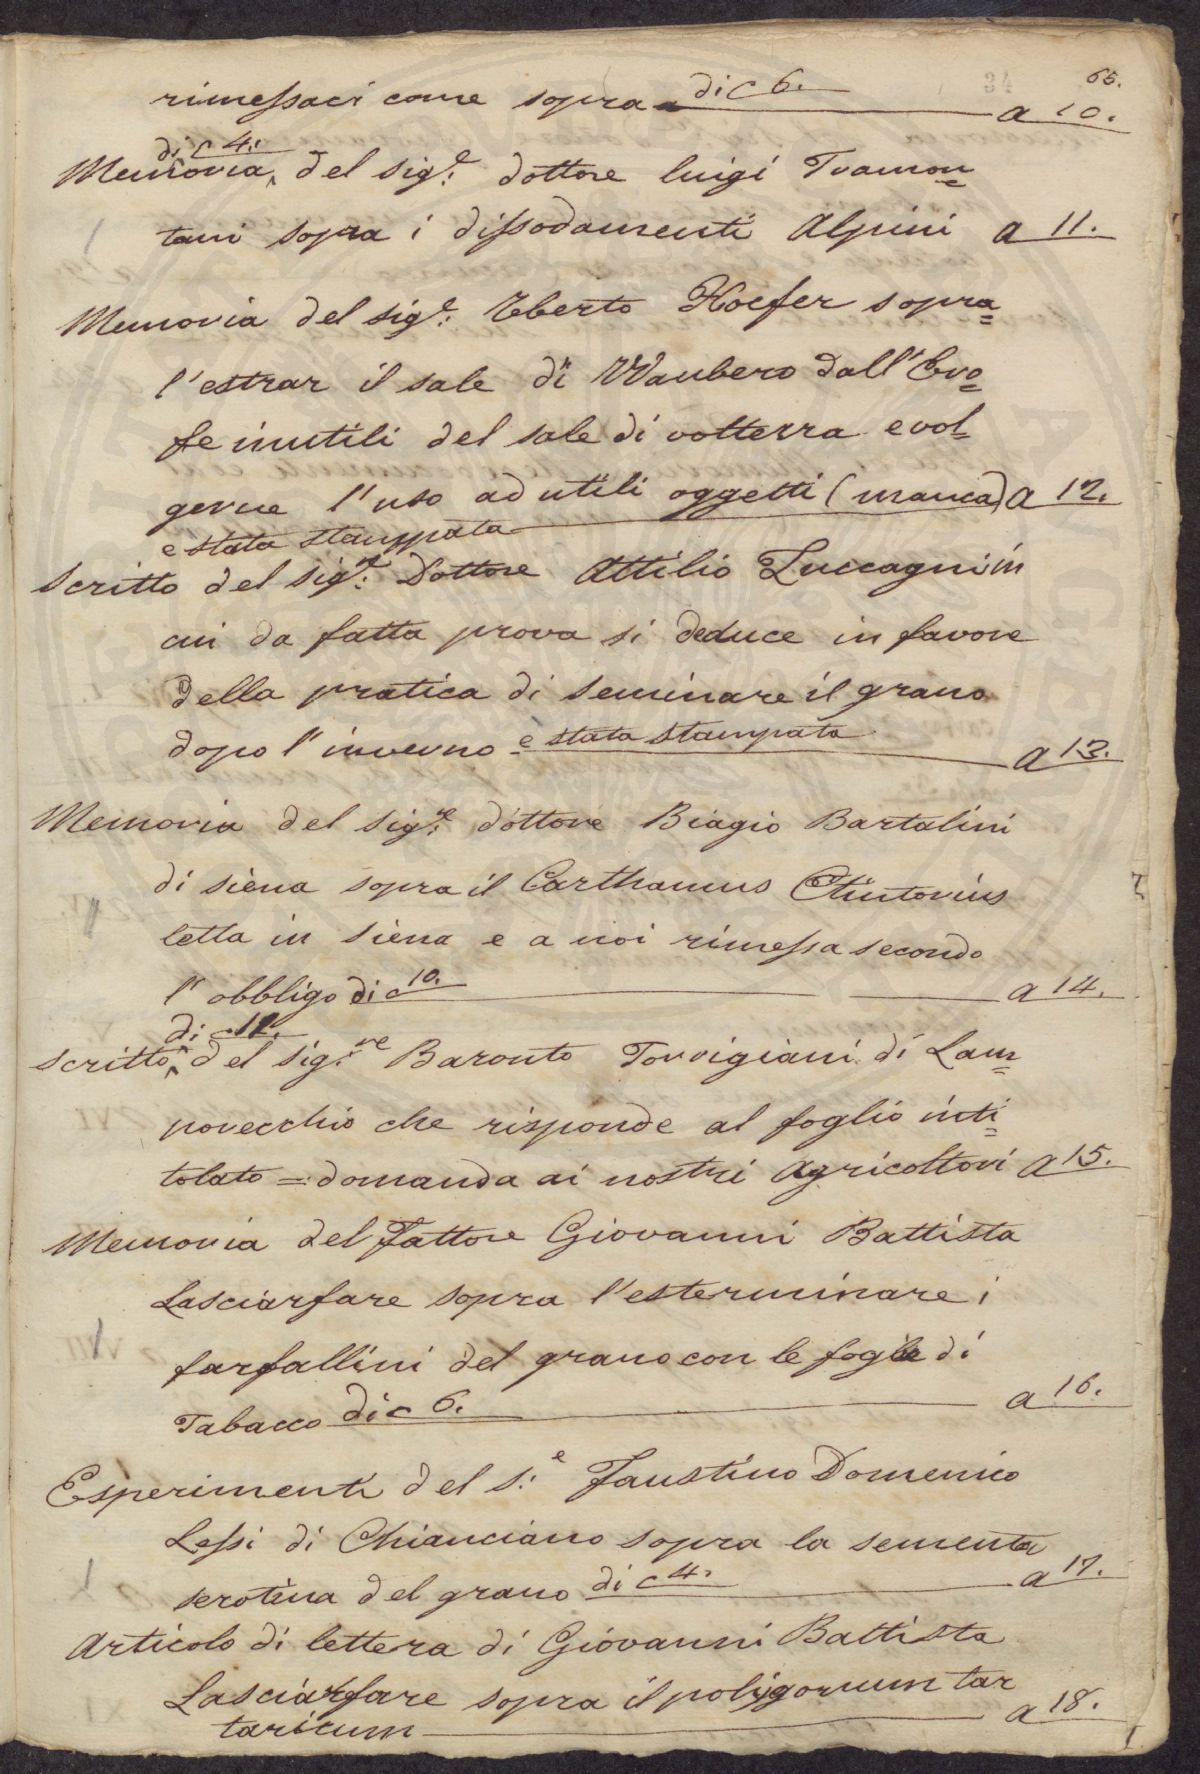 65.
rimessaci come sopra di c 6. a 10.
di c 4.
Memoria, del sig.e dottore luigi Tramon=
tani sopra i dissodamenti Alpini a 11.
Memoria del sig.e Uberto Hoefer sopra=
l'estrar il sale di Waubero dall'
fe inutili del sale di volterra e vol=
gerne l'uso ad utili oggetti (manca) a 12.
e stata stamppata
Scritto del sig.re Dottore Attilio Zuccagni in
cui da fatta prova si deduce in favore
della pratica di seminare il grano
dopo l'inverno è stata stampata a 13.
Memoria del sig.re dottore Biagio Bartalini
di siena sopra il Carthamus Ctintorius
letta in siena e a noi rimessa secondo
l'obbligo di c 10. a 14.
di c 12.
scritto, del sig.re Baronto Torrigiani di Lam=
porecchio che risponde al foglio inti=
tolato = domanda ai nostri Agricoltori a 15.
Memoria del Fattore Giovanni Battista
Lasciarfare sopra l'esterminare i
farfallini del grano con le foglie di
Tabacco di c 6. a 16.
Esperimenti del S.e Faustino Domenico
Lessi di Chianciano sopra la sementa
serotina del grano di c 4. a 17.
Articolo di lettera di Giovanni Battista
Lasciarfare sopra il poligonum tar
taricum a 18.